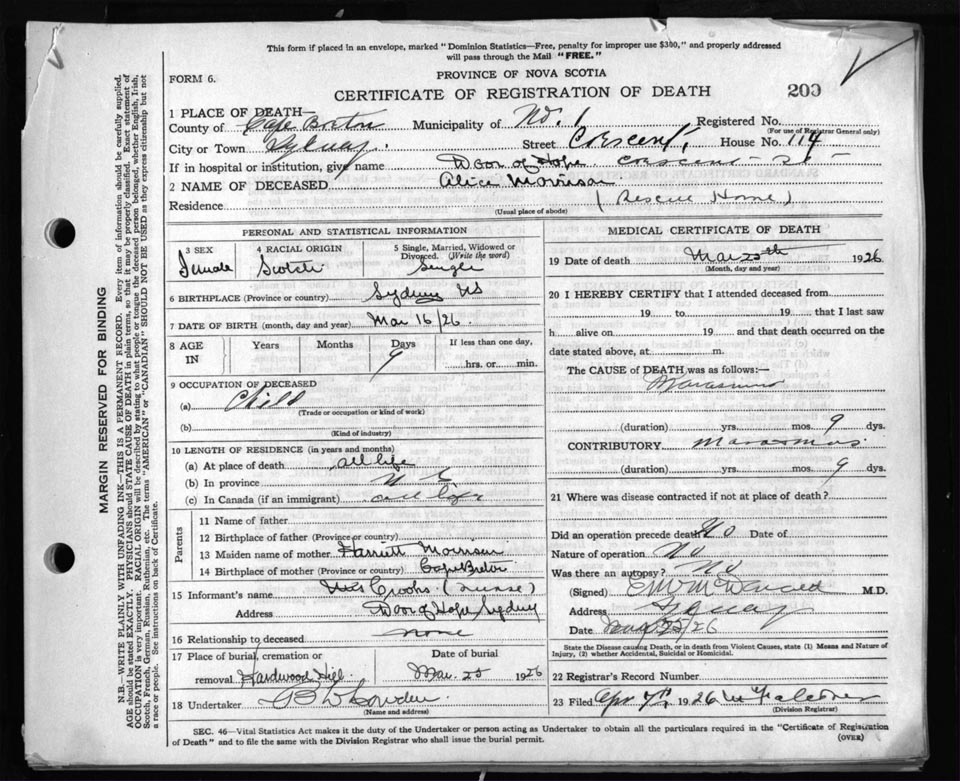 This form if placed in an envelope, marked "Dominion Statistics—Free, penalty for improper use $300," and properly addressed
will pass through the Mail "FREE."
PROVINCE OF NOVA SCOTIA
FORM 6.
CERTIFICATE OF REGISTRATION OF DEATH 203
1 PLACE OF DEATH—
County of Cape Breton Municipality of No. 1 Registered No.
(For use of Registrar General only)
City or Town Sydney Street Crescent House No. 114
If in hospital or institution, give name Door of Hope Crescent St
2 NAME OF DECEASED Alice Morrison
Residence (Rescue Home)
(Usual place of abode)
PERSONAL AND STATISTICAL INFORMATION
3 SEX 4 RACIAL ORIGIN 5 Single, Married, Widowed or Divorced. (Write the word)
Female Scotch Single
6 BIRTHPLACE (Province or country) Sydney NS
7 DATE OF BIRTH (month, day and year) Mar 16/26.
8 AGE IN Years Months Days 9 If less than one day, hrs. or min.
9 OCCUPATION OF DECEASED
(a) Child
(Trade or occupation or kind of work)
(b)
(Kind of industry)
10 LENGTH OF RESIDENCE (in years and months)
(a) At place of death all life
(b) In province
(c) In Canada (if an immigrant) all life
Parents
11 Name of father
12 Birthplace of father (Province or country)
13 Maiden name of mother Harriett Morrison
14 Birthplace of mother (Province or country) Cape Breton
15 Informant's name Miss Crooks (nurse)
Address Door of Hope, Sydney
16 Relationship to deceased none
17 Place of burial, cremation or removal Hardwood Hill Date of burial Mar. 25 1926
18 Undertaker
(Name and address)
MEDICAL CERTIFICATE OF DEATH
19 Date of death Mar 25th 1926
(Month, day and year)
20 I HEREBY CERTIFY that I attended deceased from
19 to 19 that I last saw
h alive on 19 and that death occurred on the
date stated above, at m.
The CAUSE of DEATH was as follows:—
Marasmus
(duration) yrs. mos. 9 dys.
CONTRIBUTORY marasmus
(duration) yrs. mos. 9 dys.
21 Where was disease contracted if not at place of death?
Did an operation precede death No Date of
Nature of operation No
Was there an autopsy? No
(Signed) M.D.
Address Sydney
Date /26
State the Disease causing Death, or in death from Violent Causes, state (1) Means and Nature of
Injury, (2) whether Accidental, Suicidal or Homicidal.
22 Registrar's Record Number
23 Filed Apr 7th, 1926
(Division Registrar)
SEC. 46—Vital Statistics Act makes it the duty of the Undertaker or person acting as Undertaker to obtain all the particulars required in the "Certificate of Registration
of Death" and to file the same with the Division Registrar who shall issue the burial permit. (OVER)
MARGIN RESERVED FOR BINDING
N.B.—WRITE PLAINLY WITH UNFADING INK—THIS IS A PERMANENT RECORD. Every item of information should be carefully supplied.
AGE should be stated EXACTLY. PHYSICIANS should STATE CAUSE OF DEATH in plain terms, so that it may be properly classified. Exact statement of
OCCUPATION is very important. RACIAL ORIGIN will be described by stating to what people or tongue the deceased person belonged, whether English, Irish,
Scotch, French, German, Russian, Ruthenian, etc. The terms "AMERICAN" or "CANADIAN" SHOULD NOT BE USED as they express citizenship but not
a race or people. See instructions on back of Certificate.